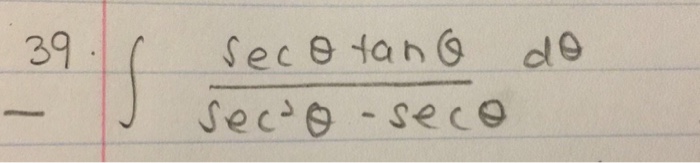 39. ∫ secθ tanθ / (sec²θ - secθ) dθ